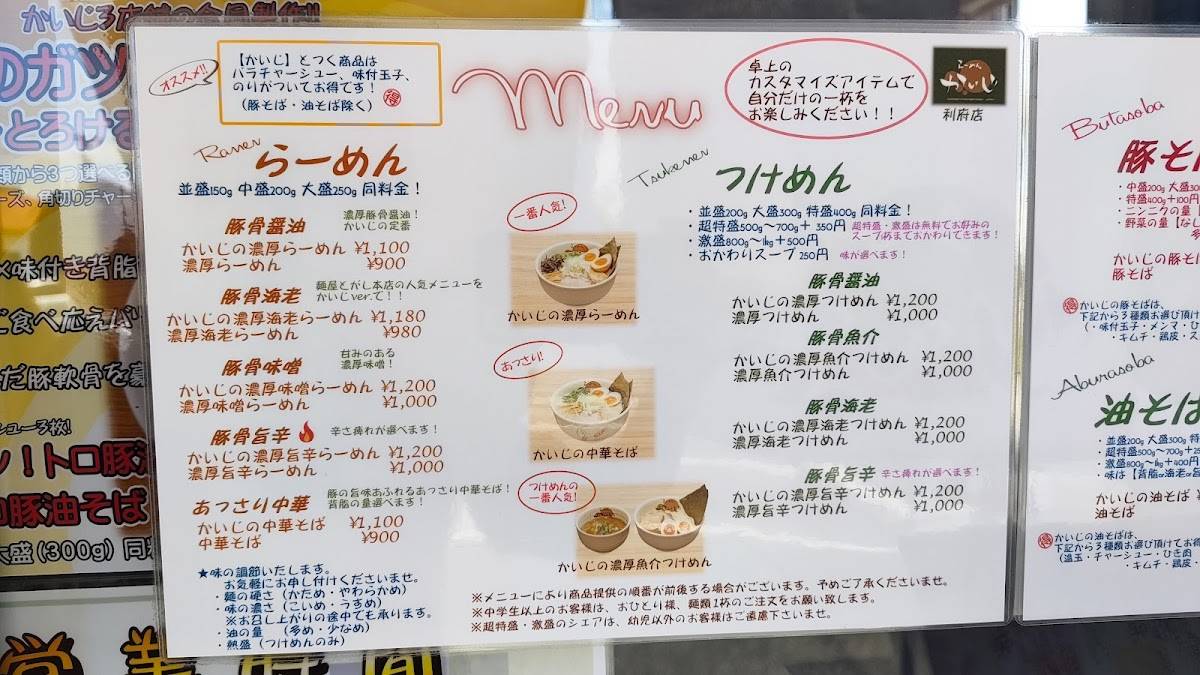 かいじ3店舗の合同製作!!
のガツ
とろける
類から3つ選べる
ーズ、角切りチャー
×味付き背脂
ご食べ応え
だ豚軟骨を
シュー3枚!
ン!トロ豚
豚油そば
大盛(300g)同
営業時間
オススメ!!
【かいじ】とつく商品は
バラチャーシュー、味付玉子、
のりがついてお得です!
(豚そば・油そば除く)
得
Menu
卓上の
カスタマイズアイテムで
自分だけの一杯を
お楽しみください!!
らーめん
かいじ
利府店
Ramen
らーめん
並盛150g 中盛200g 大盛250g 同料金!
豚骨醤油
濃厚豚骨醤油!
かいじの定番
かいじの濃厚らーめん ¥1,100
濃厚らーめん ¥900
豚骨海老
麺屋とがし本店の人気メニューを
かいじver.で!!
かいじの濃厚海老らーめん ¥1,180
濃厚海老らーめん ¥980
豚骨味噌
甘みのある
濃厚味噌!
かいじの濃厚味噌らーめん ¥1,200
濃厚味噌らーめん ¥1,000
豚骨旨辛
辛さ痺れが選べます!
かいじの濃厚旨辛らーめん ¥1,200
濃厚旨辛らーめん ¥1,000
あっさり中華
豚の旨味あふれるあっさり中華そば!
背脂の量選べます!
かいじの中華そば ¥1,100
中華そば ¥900
★味の調節いたします。
お気軽にお申し付けくださいませ。
・麺の硬さ(かため・やわらかめ)
・味の濃さ(こいめ・うすめ)
※お召し上がりの途中でも承ります。
・油の量 (多め・少なめ)
・熱盛(つけめんのみ)
一番人気!
かいじの濃厚らーめん
あっさり!
かいじの中華そば
つけめんの
一番人気!
かいじの濃厚魚介つけめん
Tsukemen
つけめん
・並盛200g 大盛300g 特盛400g 同料金!
・超特盛500g〜700g+ 350円
・激盛800g〜1kg+500円
超特盛・激盛は無料でお好みの
スープ1杯までおかわりできます!
・おかわりスープ 250円 味が選べます!
豚骨醤油
かいじの濃厚つけめん ¥1,200
濃厚つけめん ¥1,000
豚骨魚介
かいじの濃厚魚介つけめん ¥1,200
濃厚魚介つけめん ¥1,000
豚骨海老
かいじの濃厚海老つけめん ¥1,200
濃厚海老つけめん ¥1,000
豚骨旨辛 辛さ痺れが選べます!
かいじの濃厚旨辛つけめん ¥1,200
濃厚旨辛つけめん ¥1,000
※メニューにより商品提供の順番が前後する場合がございます。予めご了承くださいませ。
※中学生以上のお客様は、おひとり様、麺類1杯のご注文をお願い致します。
※超特盛・激盛のシェアは、幼児以外のお客様はご遠慮下さいませ。
Butasoba
豚そ
・中盛200g 大盛300
・特盛400g+100円
・ニンニクの量【
・野菜の量【なし
かいじの豚そば
豚そば
得 かいじの豚そばは、
下記から3種類お選び頂け
(・味付玉子・メンマ・
・キムチ・鶏皮・ス
Aburasoba
油そば
・並盛200g 大盛300g 特
・超特盛500g〜700g+25
・激盛800g〜1kg+400円
・味は【背脂or海老or旨
かいじの油そば
油そば
得 かいじの油そばは、
下記から3種類お選び頂けてお得
(温玉・チャーシュー・ひき肉
・キムチ・鶏皮・